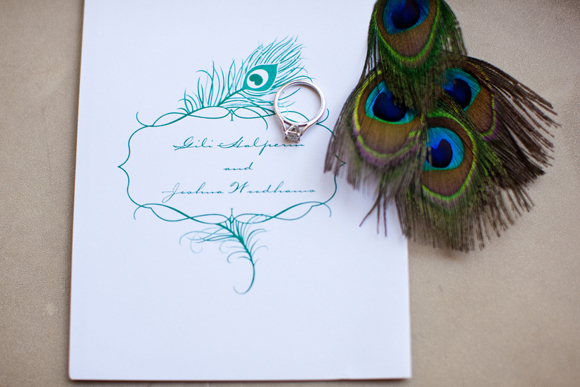 Gili Halperin
and
Joshua